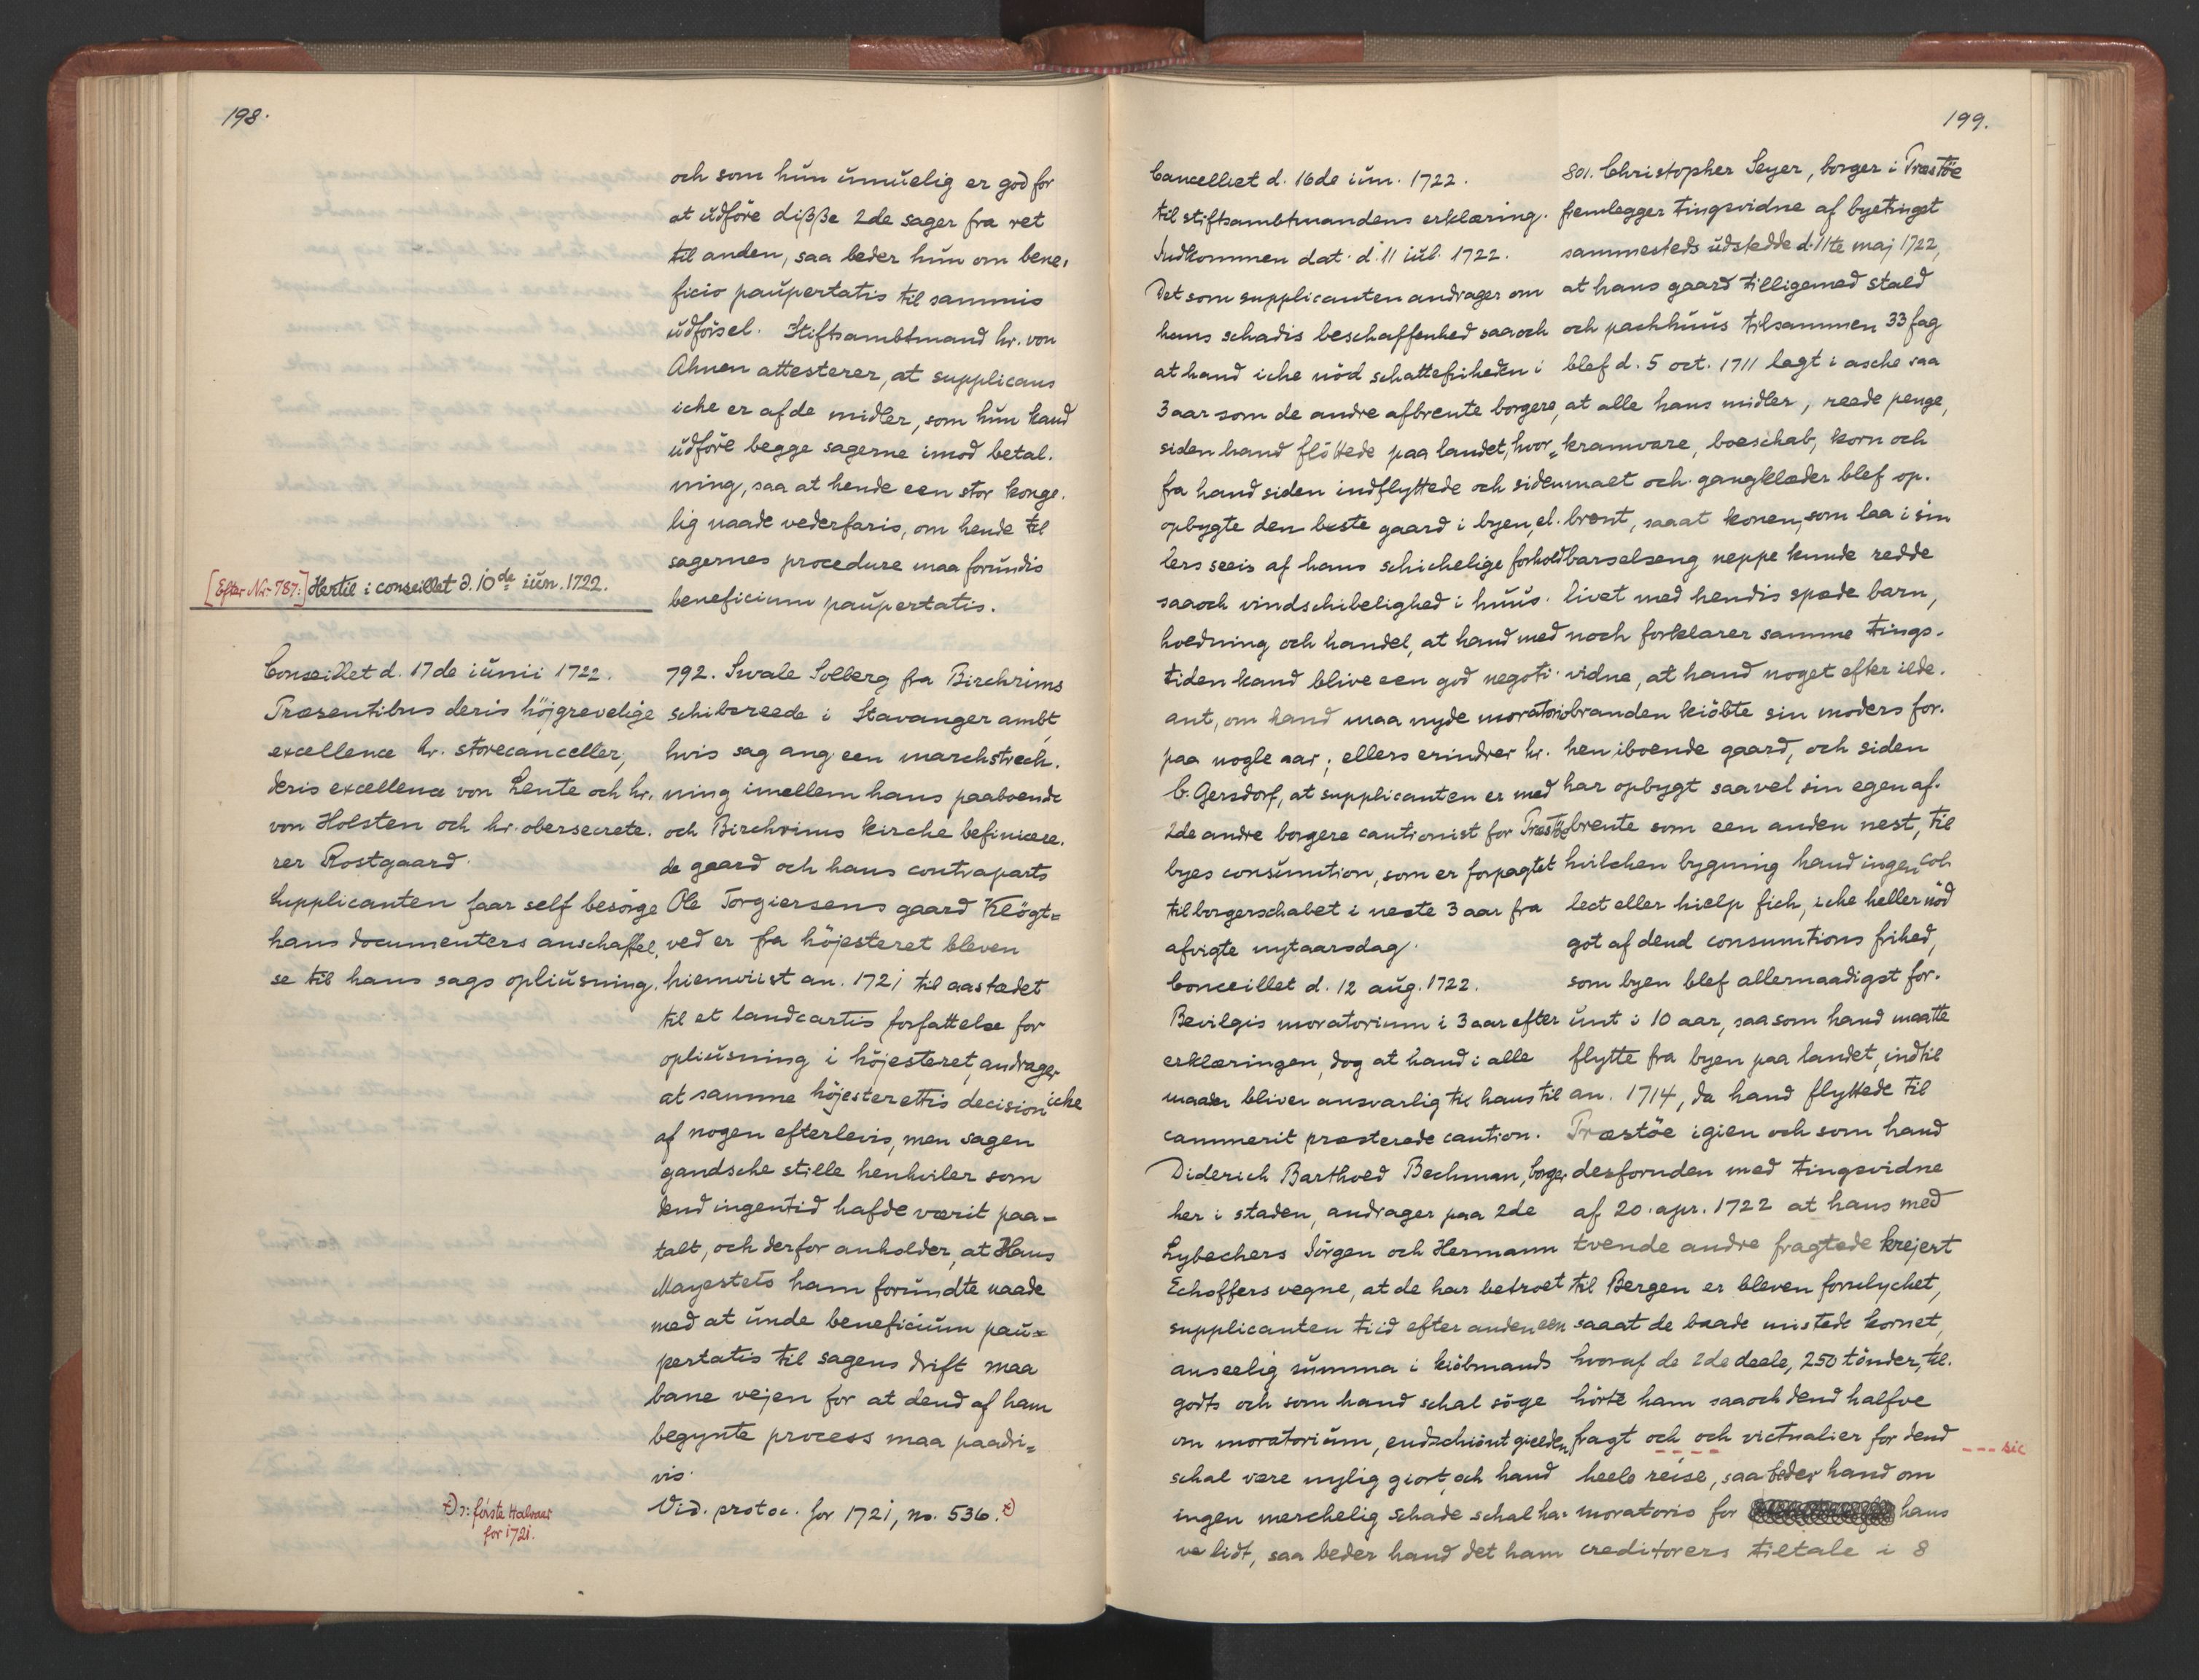 198.
och som hún úmúelig er god for
at údföre dißße 2de sager fra ret
til anden, saa beder hún om bene,
ficio paúpertatis til sammis
údförsel. Stiftsambtmand hr. von
Ahnen attesterer, at supplicans
iche er af de midler, som hún kand
údföre begge sagerne imod betal.
ning, saa at hende een stor konge.
lig naade vederfaris, om hende til
sagernes procedure maa forúndis
beneficium paúpertatis.
[Efter Nr. 787:] Hertil i conseillet d. 10de iún. 1722.
Conseillet d. 17de iúnii 1722.
Præsentibus deris höjgrevelige
excellence hr. storecanceller,
deris excellence von Lente och hr.
von Holsten och hr. obersecrete.
rer Rostgaard.
Supplicanten faar self besörge
hans documenters anschaffel,
se til hans sags opliúsning.
792. Swale Solberg fra Birchrims
schibsreede i Stavanger ambt,
hvis sag ang. een marchstrech.
ning imellem hans paaboende
och Birchrims kirche befinere.
de gaard och hans contraparts
Ole Torgiersens gaard Klögt=
ved er fra höjesteret bleven
hiemviist an. 1721 til aastædet
til et landcartis forfattelse for
opliúsning i höjesteret, andrager
at samme höjesterettis decision iche
af nogen efterlevis, men sagen
gandsche stille henhviler som
dend ingentid hafde værit paa-
talt, och derfor anholder, at Hans
Mayestets ham forúndte naade
med at únde beneficiúm paú=
pertatis til sagens drift maa
bane vejen for at dend af ham
begynte process maa paadri=
vis.
Vid. protoc. for 1721, no. 536. t)
t) ɔ: förste Halvaar
for 1721.
199.
Cancelliet d. 16de iún. 1722.
til stiftsambtmandens erklæring.
Indkommen dat. d. 11 iúl. 1722.
Det som supplicanten andrager om
hans schadis beschaffenhed saaoch
at hand iche nöd schattefriheden i
3 aar som de andre afbrente borgere,
siden hand flöttede paa landet, hvor=
fra hand siden indflyttede och siden
opbygte den beste gaard i byen, el.
lers seeis af hans schichelige forhold
saaoch vindschibelighed i húús.
holdning och handel, at hand med
tiden kand blive een god negoti.
ant, om hand maa nyde moratorio
paa nogle aar; ellers erindrer hr.
C. Gersdorf, at supplicanten er med
2de andre borgere cautionist for Præstöe
byes consúmtion, som er forpagtet
til borgerschabet i neste 3 aar fra
afvigte nytaarsdag.
Conceillet d. 12 aúg. 1722.
Bevilgis moratorium i 3 aar efter
erklæringen, dog at hand i alle
maader bliver ansvarlig til hans til
cammerit præsterede caution.
Diderich Barthold Bechman, borger
her i staden, andrager paa 2de
Lybechers Jörgen och Hermann
Echoffers vegne, at de har betroet
supplicanten tiid efter anden een
anseelig súmma i kiöbmands
godts och som hand schal söge
om moratoriúm, endschiönt gielden
schal være nylig giort, och hand
ingen merchelig schade schal ha=
ve lidt, saa beder hand det ham
801. Christopher Seyer, borger i Præstöe
fremlegger tingsvidne af byetinget
sammesteds údstedde d. 11te maj 1722,
at hans gaard tilligemed stald
och pachhúús tilsammen 33 fag
blef d. 5 oct. 1711 lagt i asche saa
at alle hans midler, reede penge,
kramvare, boeschab, korn och
maet och gangklæder blef op.
brent, saaat konen, som laa i sin
barselseng neppe kunde redde
livet med hendis spæde barn,
noch forklarer samme tings.
vidne, at hand noget efter ilde.
branden kiöbte sin moders for.
hen iboende gaard, och siden
har opbygt saavel sin egen af.
brente som een anden nest, til
hvilchen bygning hand ingen col
lect eller hielp fich, iche heller nöd
got af dend consumtions frihed,
som byen blef allernaadigst for.
únt i 10 aar, saasom hand maatte
flytte fra byen paa landet, indtil
an. 1714, da hand flyttede til
Præstöe igien och som hand
desforúden med tingsvidne
af 20. apr. 1722 at hans med
tvende andre fragtede krejert
til Bergen er bleven forulychet,
saaat de baade mistede kornet,
hvoraf de 2de deele, 250 tönder, til.
hörte ham saaoch dend halfve
fragt och och victualier for dend --- sic
heele reise, saa beder hand om
moratoris for hans
creditorers tiltale i 8